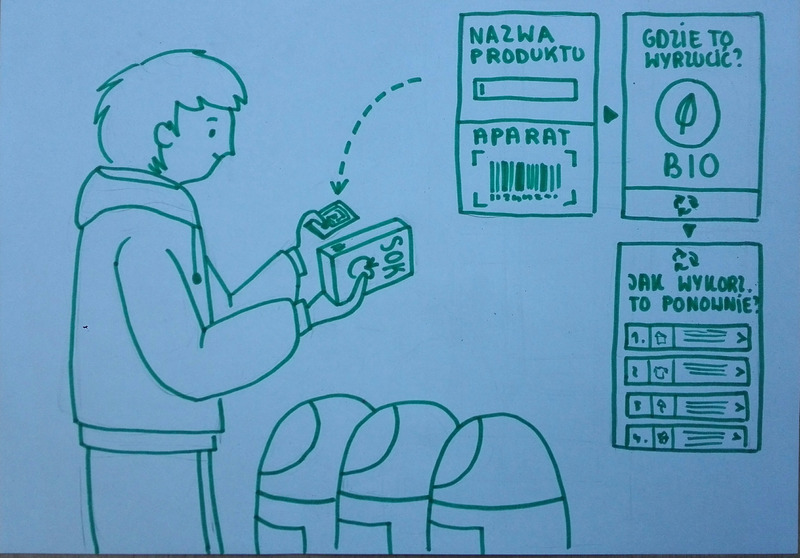 NAZWA
PRODUKTU
APARAT
GDZIE TO
WYRZUCIĆ?
BIO
JAK WYKORZ.
TO PONOWNIE?
1.
2
3
4.
SOK